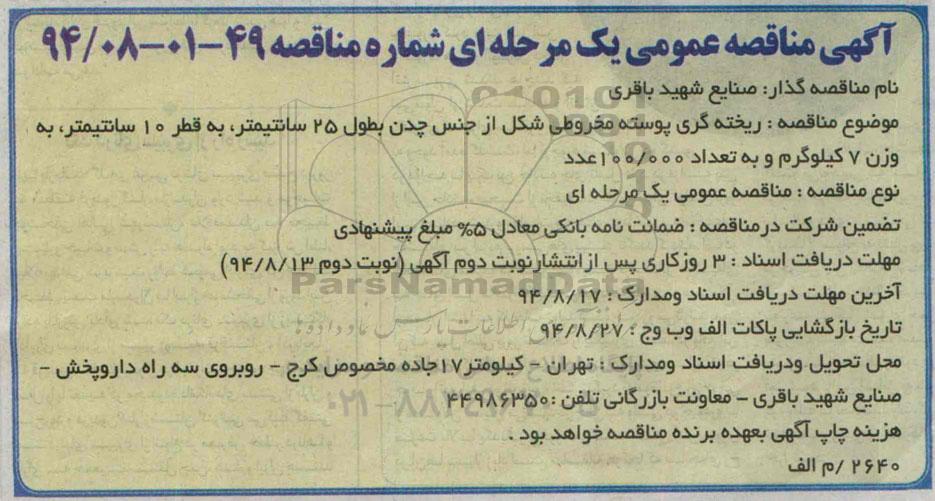 آگهی مناقصه عمومی یک مرحله ای شماره مناقصه ۴۹-۰۱-۹۴/۰۸
نام مناقصه گذار: صنایع شهید باقری
موضوع مناقصه : ریخته گری پوسته مخروطی شکل از جنس چدن بطول ۲۵ سانتیمتر، به قطر ۱۰ سانتیمتر، به
وزن ۷ کیلوگرم و به تعداد ۱۰۰/۰۰۰عدد
نوع مناقصه : مناقصه عمومی یک مرحله ای
تضمین شرکت درمناقصه : ضمانت نامه بانکی معادل ۵% مبلغ پیشنهادی
مهلت دریافت اسناد : ۳ روزکاری پس ازانتشارنوبت دوم آگهی (نوبت دوم ۹۴/۸/۱۳)
آخرین مهلت دریافت اسناد ومدارک : ۹۴/۸/۱۷
تاریخ بازگشایی پاکات الف وب وج : ۹۴/۸/۲۷
محل تحویل ودریافت اسناد ومدارک : تهران - کیلومتر۱۷جاده مخصوص کرج - روبروی سه راه داروپخش -
صنایع شهید باقری - معاونت بازرگانی تلفن : ۴۴۹۸۶۳۵۰
هزینه چاپ آگهی بعهده برنده مناقصه خواهد بود .
۲۶۴۰ /م الف
ParsNamadData